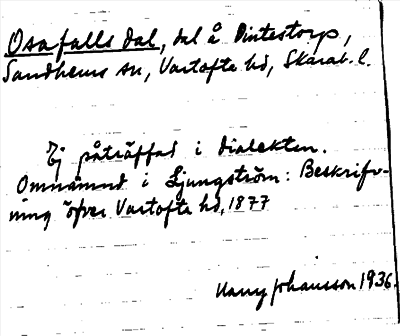 Osafalls dal, dal å Vintestorp,
Sandhems sn, Vartofta hd, Skarab. l.
Ej påträffad i dialekten.
Omnämnd i Ljungström: Beskrifv-
ning öfver Vartofta hd, 1877
Harry Johansson 1936.